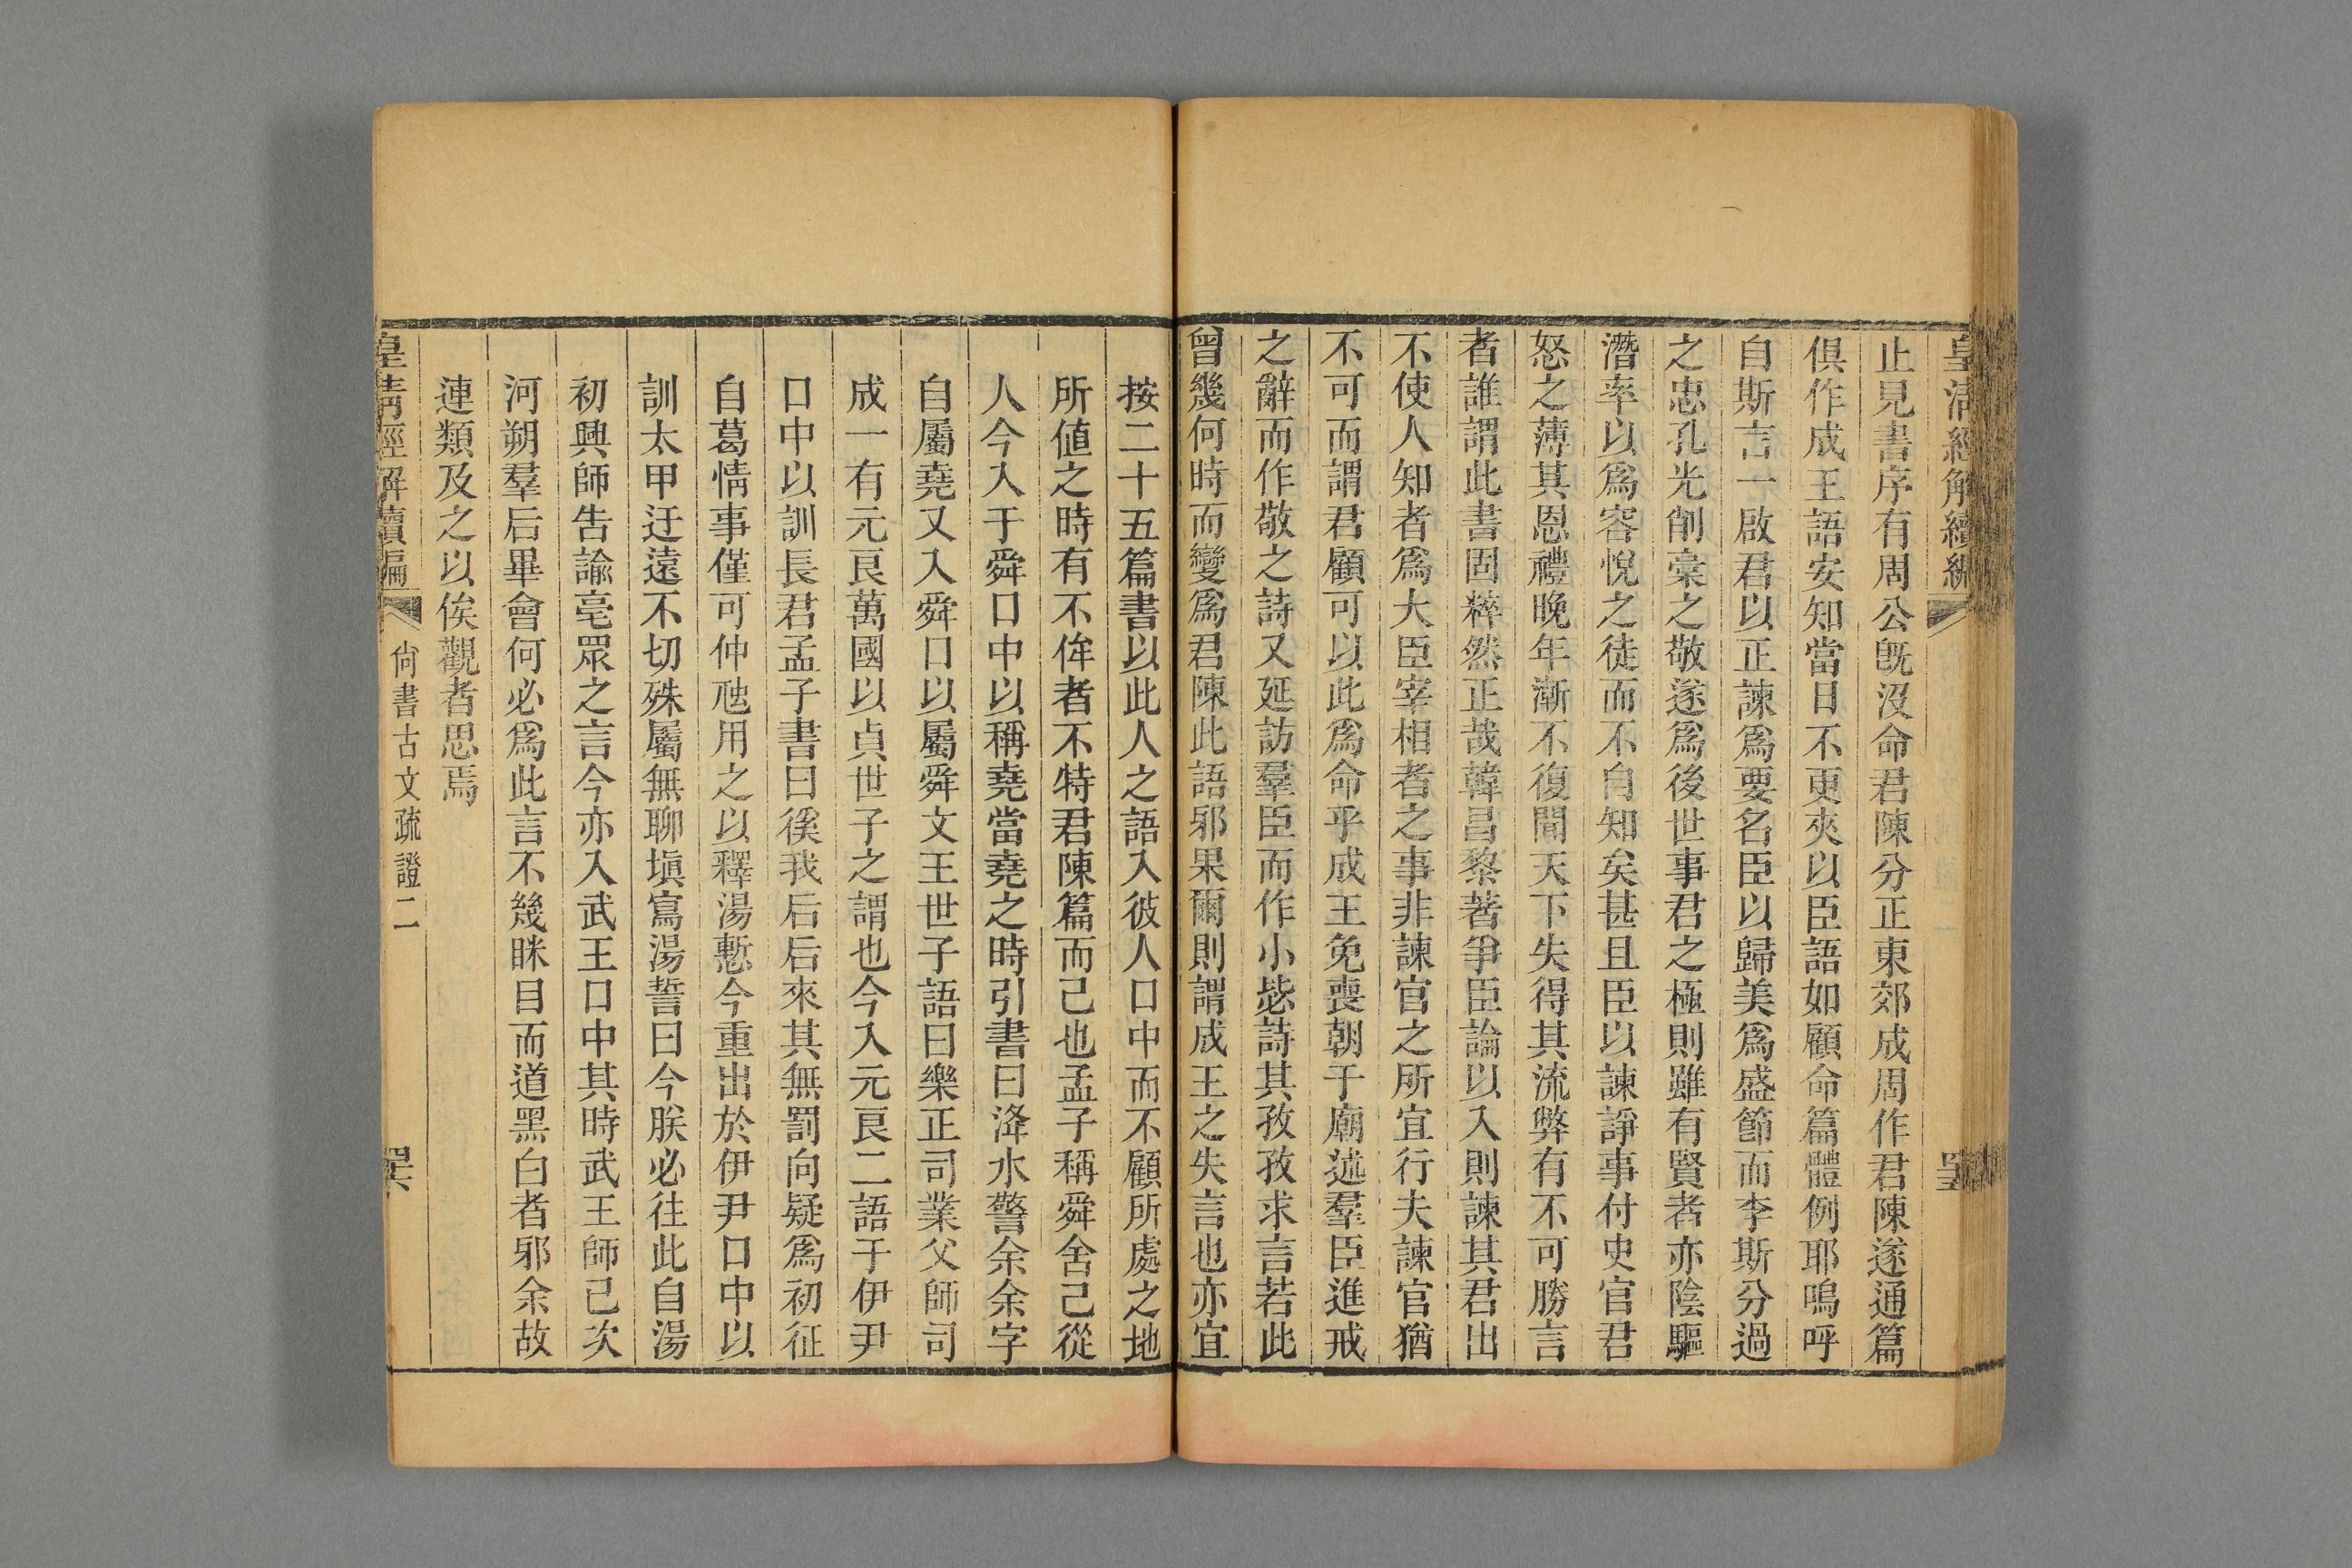 皇清經解續編
止見書序有周公旣沒命君陳分正東郊成周作君陳遂通篇
俱作成王語安知當日不更夾以臣語如顧命篇體例耶嗚呼
自斯言一啟君以正諫爲要名臣以歸美爲盛節而李斯分過
之忠孔光削稾之敬遂爲後世事君之極則雖有賢者亦陰驅
潛率以爲容悅之徒而不自知矣甚且臣以諫諍事付史官君
怒之薄其恩禮晚年漸不復聞天下失得其流弊有不可勝言
者誰謂此書固粹然正哉韓昌黎著爭臣論以入則諫其君出
不使人知者爲大臣宰相者之事非諫官之所宜行夫諫官猶
不可而謂君顧可以此爲命乎成王免喪朝于廟述羣臣進戒
之辭而作敬之詩又延訪羣臣而作小毖詩其孜孜求言若此
曾幾何時而變爲君陳此語邪果爾則謂成王之失言也亦宜
按二十五篇書以此人之語入彼人口中而不顧所處之地
所値之時有不侔者不特君陳篇而已也孟子稱舜舍己從
人今入于舜口中以稱堯當堯之時引書曰洚水警余余字
自屬堯又入舜口以屬舜文王世子語曰樂正司業父師司
成一有元良萬國以貞世子之謂也今入元良二語于伊尹
口中以訓長君孟子書曰徯我后后來其無罰向疑爲初征
自葛情事僅可仲虺用之以釋湯慙今重出於伊尹口中以
訓太甲迂遠不切殊屬無聊塡寫湯誓曰今朕必往此自湯
初興師告諭亳眾之言今亦入武王口中其時武王師已次
河朔羣后畢會何必爲此言不幾眯目而道黑白者邪余故
連類及之以俟觀者思焉
皇清經解續編
尙書古文疏證二